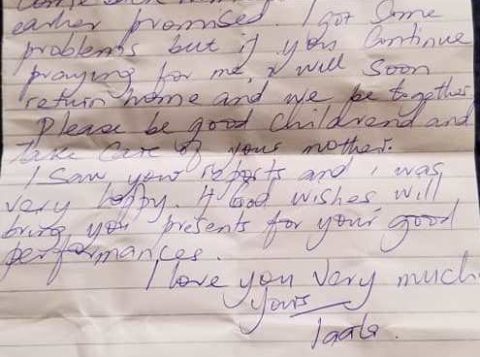 earlier promised. I got some
problems but if you continue
praying for me, i will soon
return home and we be together
Please be good childrend and
take care of your mother.
I saw your reports and i was
very happy. If God wishes, will
bring you presents for your good
performances.
I love you very much
yours
Taata.